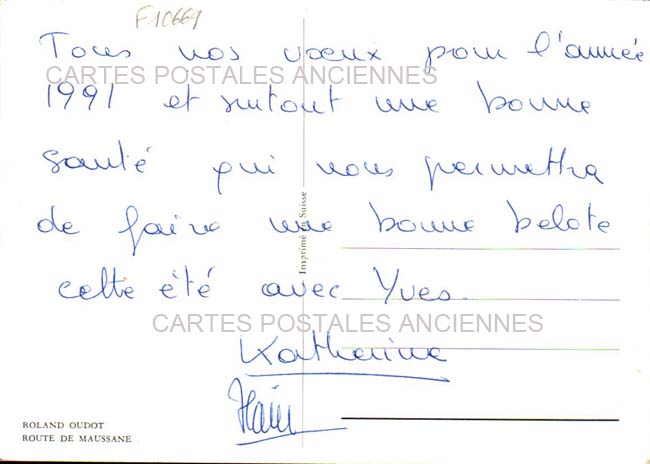 F10669
Tous nos vœux pour l'année
CARTES POSTALES ANCIENNES
1991 et surtout une bonne
santé qui nous permettra
de faire une bonne belote
Imprimé en Suisse
cette été avec Yves.
CARTES POSTALES ANCIENNES
Katherine
ROLAND OUDOT
ROUTE DE MAUSSANE